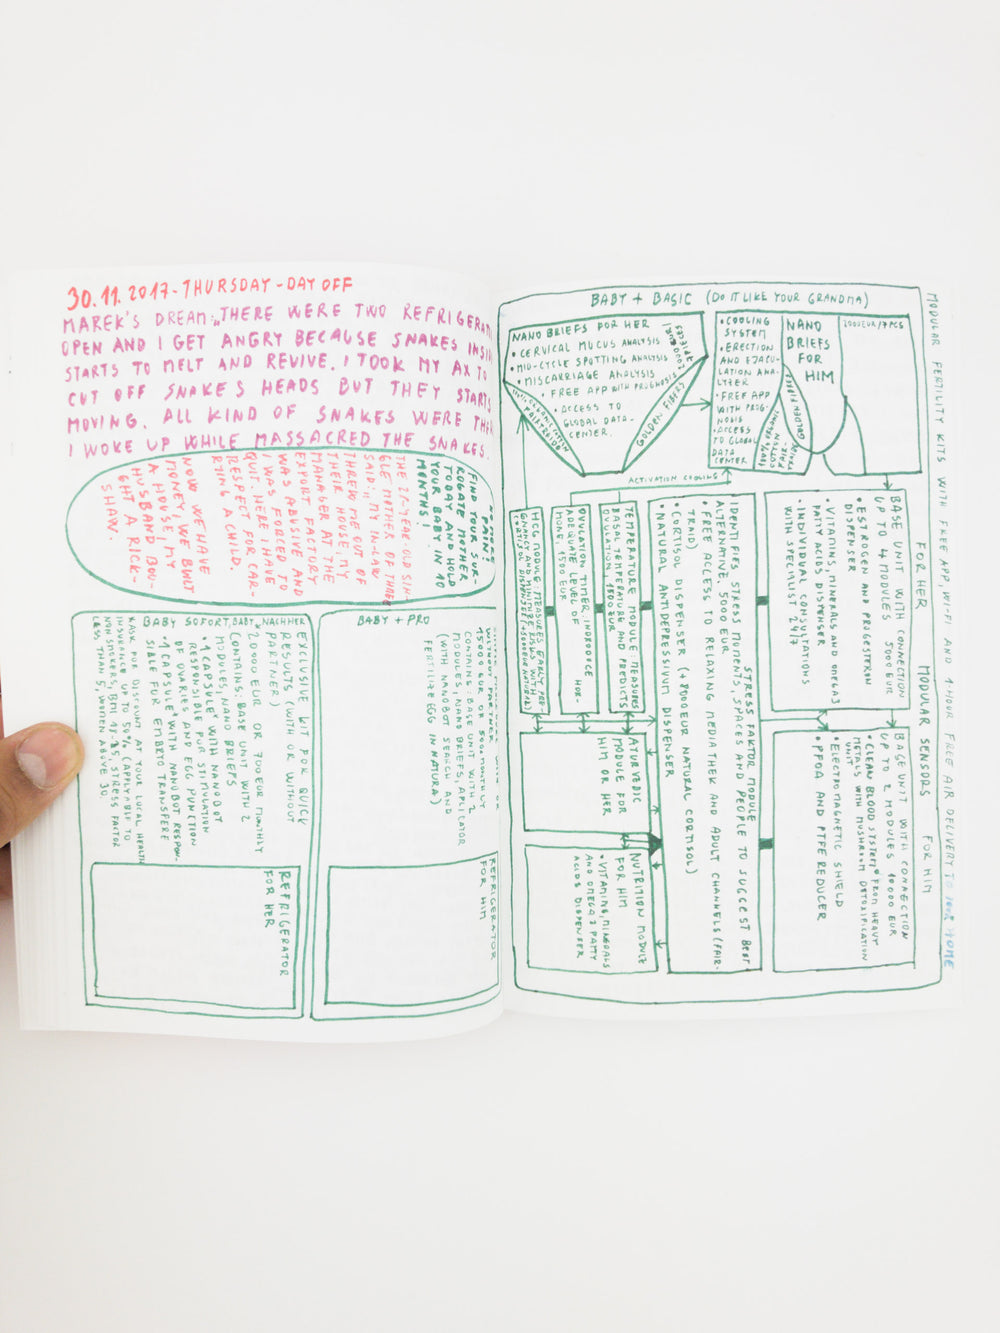 30.11.2017-THURSDAY-DAY OFF
MAREK'S DREAM: „THERE WERE TWO REFRIGERA
OPEN AND I GET ANGRY BECAUSE SNAKES INSI
STARTS TO MELT AND REVIVE. I TOOK MY AX TO
CUT OFF SNAKES HEADS BUT THEY STARTS
MOVING. ALL KIND OF SNAKES WERE THE
I WOKE UP WHILE MASSACRED THE SNAKES.
NO MORE
PAIN!
FIND YOUR SUR-
ROGATE MOTHER
TODAY AND HOLD
YOUR BABY IN 10
MONTHS!
THE 26-YEAR-OLD SIN-
GLE MOTHER OF THREE
SAID: „MY IN-LAW
THREW ME OUT OF
THEIR HOUSE, MY
MANAGER AT THE
EXPORT FACTORY
WAS ABUSIVE AND
I WAS FORCED TO
QUIT. HERE I HAVE
RESPECT FOR CAR-
RYING A CHILD.
NOW WE HAVE
MONEY, WE BUILT
A HOUSE, MY
HUSBAND BOU-
GHT A RICK-
SHAW.
BABY SOFORT, BABY NACHHER
EXCLUSIVE KIT FOR QUICK
RESULTS (WITH OR WITHOUT
PARTNER)
20000 EUR OR 700EUR MONTHLY
CONTAINS: BASE UNIT WITH 2
MODULES, NANO BRIEFS
• 1 CAPSULE* WITH NANOBOT
RESPONSIBLE FUR STIMULATION
OF OVARIES AND EGG PUNCTION
• 1 CAPSULE* WITH NANOBOT RESPON-
SIBLE FUR EMBRYO TRANSFERE
*ASK FOR DISCOUNT AT YOUR LOCAL HEALTH
INSURANCE UP TO 50% (APPLYABLE TO
NON SMOKERS, BMI 19-25 STRESS FACTOR
LESS THAN 5, WOMEN ABOVE 30.
REFRIGERATOR
FOR HER
BABY + PRO
WITHOUT PARTNER
15000 EUR OR 500EUR MONTHLY
CONTAINS: BASE UNIT WITH 2
MODULES, NANO BRIEFS, APLICATOR
(WITH NANOBOT SEARCH AND
FERTILIZE EGG IN NATURA)
REFRIGERATOR
FOR HIM
MODULAR FERTILITY KITS WITH FREE APP, WIFI AND 1-HOUR FREE AIR DELIVERY TO YOUR HOME
BABY + BASIC (DO IT LIKE YOUR GRANDMA)
FOR HER MODULAR SENSORS FOR HIM
NANO BRIEFS FOR HER
• CERVICAL MUCUS ANALYSIS
• MID-CYCLE SPOTTING ANALYSIS
• MISCARRIAGE ANALYSIS
• FREE APP WITH PROGNOSIS
• ACCESS TO
GLOBAL DATA-
CENTER.
GOLDEN FIBERS
• COOLING
SYSTEM
• ERECTION
AND EJACU-
LATION ANA-
LYZER
• FREE APP
WITH PROG-
NOSIS
• ACCESS
TO GLOBAL
DATA
CENTER
NANO
BRIEFS
FOR
HIM
GOLDEN FIBERS
1000EUR/7PCS
ACTIVATION COOLING
BASE UNIT WITH CONNECTION
UP TO 4 MODULES 5000 EUR
• ESTROGEN AND PROGESTERON
DISPENSER
• VITAMIN, MINERALS AND OMEGA3
FATTY ACIDS DISPENSER
• INDIVIDUAL CONSULTATIONS
WITH SPECIALIST 24/7
BASE UNIT WITH CONNECTION
UP TO 2 MODULES 10000 EUR
• „CLEAN BLOOD SYSTEM" FROM HEAVY
METALS WITH MUSHROOM DETOXIFICATION
UNIT
• ELECTROMAGNETIC SHIELD
• PFOA AND PTFE REDUCER
STRESS FAKTOR MODULE
IDENTIFIES STRESS MOMENTS, SPACES AND PEOPLE TO SUGGEST BEST
ALTERNATIVE. 5000 EUR
• FREE ACCESS TO RELAXING MEDIATHEK AND ADULT CHANNELS (FAIR-
TRAID)
• CORTISOL DISPENSER (+8000EUR NATURAL CORTISOL)
• NATURAL ANTIDEPRESSIVUM DISPENSER
TEMPERATURE MODULE: MEASURES
BASAL TEMPERATURE AND PREDICTS
OVULATION, 1500 EUR
OVULATION TIMER, INDROODCE
ADEQUATE LEVEL OF HOR-
MONE, 1500 EUR
HCG MODULE: MEASURES EARLY PRE-
AYURVEDIC
MODULE FOR
HIM OR HER
NUTRITION MODULE
FOR HIM
• VITAMINS, MINERALS
AND OMEGA 3 FATTY
ACIDS DISPENSER